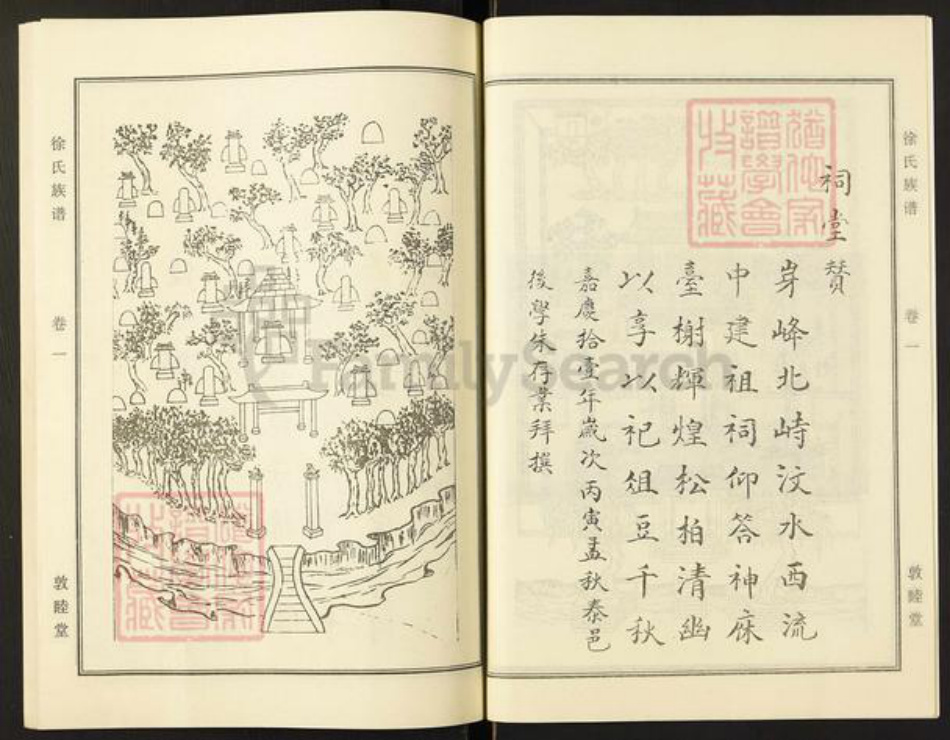 徐氏族谱
卷一
敦睦堂
祠堂赞
峄北峙汶水西流
中建祖祠仰答神庥
臺榭輝煌松柏清幽
以享以祀俎豆千秋
嘉慶拾壹年歲次丙寅孟秋泰邑
後學朱存業拜撰
徐氏族谱
卷一
敦睦堂
FamilySearch